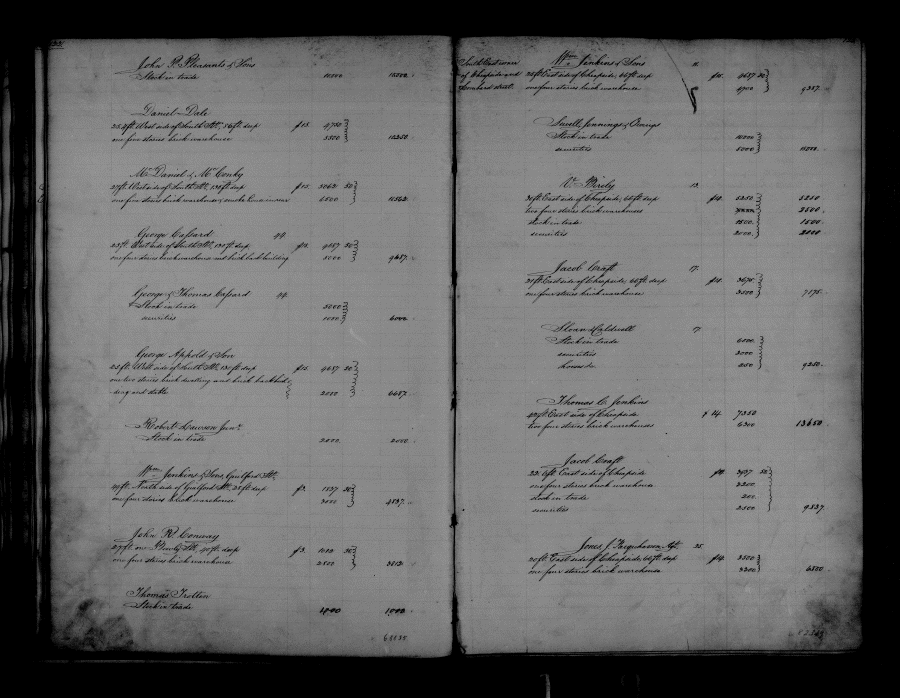 John P. Pleasants & Sons
Stock in trade 15000 15000
Daniel Dale
25.4ft. West side of South St., 56ft. deep f 13. 4750
one four stories brick warehouse 5500 10250
Mc Daniel & Mc Conky
27ft. West side of South St. 130ft deep f 15. 5062 50
one four stories brick warehouse & smoke house in rear 5500 10562
George Cassard 44
25ft. West side of South St., 130ft deep, f 15. 4687 50
one four stories brick warehouse and brick back building 5000 9687
George & Thomas Cassard 44
Stock in trade 5000
securities 1000 6000
George Appold & Son
25ft. West side of South St. 130ft deep f 15. 4687 50
one two stories brick dwelling and brick back build
ing and stable 2000 6687
Robert Lawson Junr.
Stock in trade 2000 2000
Wm. Jenkins & Sons, Guilford St.
49ft. North side of Guilford St. 25ft deep f 3. 1837 50
one four stories brick warehouse 3000 4837
John R. Conway
27ft. on St., 40ft. deep f 3. 1012 50
one four stories brick warehouse 2500 3512
Thomas Trotten
Stock in trade 1000 1000
South East corner
of Cheapside and
Lombard street.
Wm. Jenkins & Sons
25ft. East side of Cheapside, 66ft. deep f 14. 4687 50
one four stories brick warehouse 4700 9387
Jennings &
Stock in trade 10000
securities 5000 15000
V. Birely 13
30ft. East side of Cheapside, 66ft. deep f 14. 5250 5250
two four stories brick warehouses 2500
stock in trade 1500 1500
securities 2000 2000
Jacob Craft 17.
21ft. East side of Cheapside, 66ft. deep f 14. 3675
one four stories brick warehouse 3500 7175
Sloan & Caldwell 17
Stock in trade 6000
securities 3000
horses &c 250 9250
Thomas C. Jenkins
42ft East side of Cheapside f 14. 7350
two four stories brick warehouses 6300 13650
Jacob Craft
22.6ft East side of Cheapside f 14. 3937 50
one four stories brick warehouse 3200
stock in trade 200
securities 2500 9837
Jones, J. Farquharson Agt. 25
20ft East side of Cheapside 66ft. deep f 14. 3500
one four stories brick warehouse 3300 6800